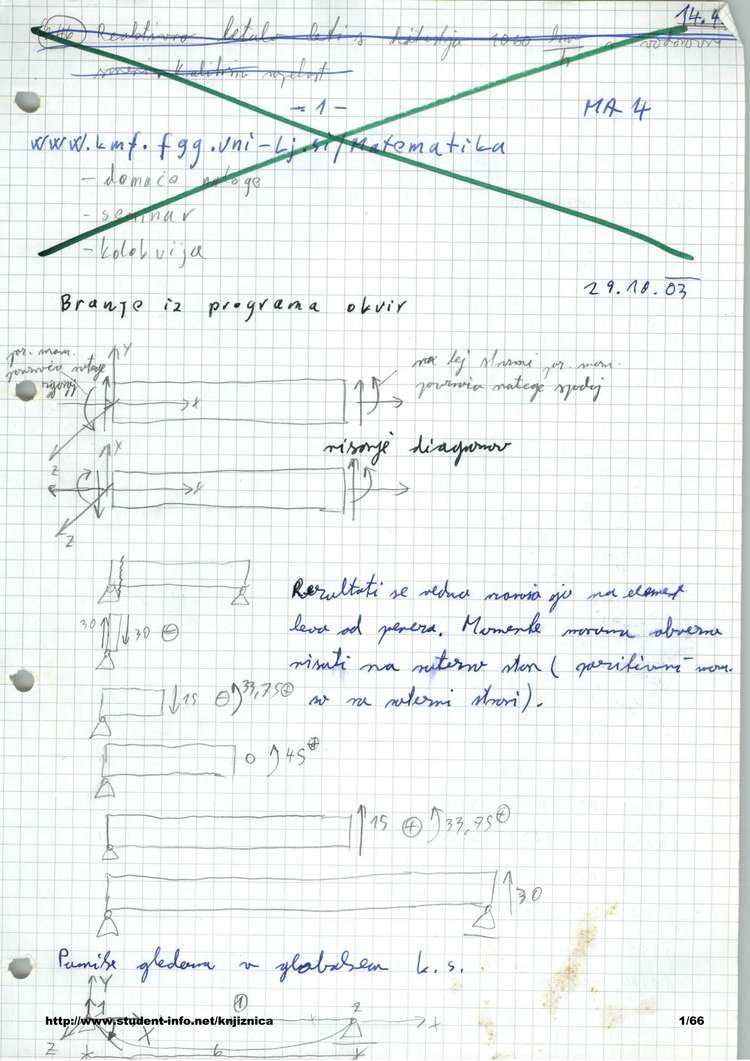 14.4
Reaktivno letalo leti s hitrostjo 1000 km/h v vodoravni
smeri
- 1 -
MA 4
www.kmf.fgg.uni-lj.si/Matematika
- domače naloge
- seminar
- kolokvija
29.10.03
Branje iz programa okvir
poz. mom.
povzroča natege
zgoraj
Y
X
Z
na tej strani poz. mom.
povzroča natege spodaj
risanje diagramov
X
X
Z
Z
Rezultati se vedno nanašajo na element
levo od prereza. Momente moramo obvezno
30
30 ⊖
risati na natezno stran (pozitivni mom.
so na natezni strani).
15 ⊖
33,75 ⊕
0
45 ⊕
15 ⊕
33,75 ⊕
30
Pomike gledamo v globalnem k.s.
Y
1
1
2
X
X
Z
6
http://www.student-info.net/knjiznica
1/66